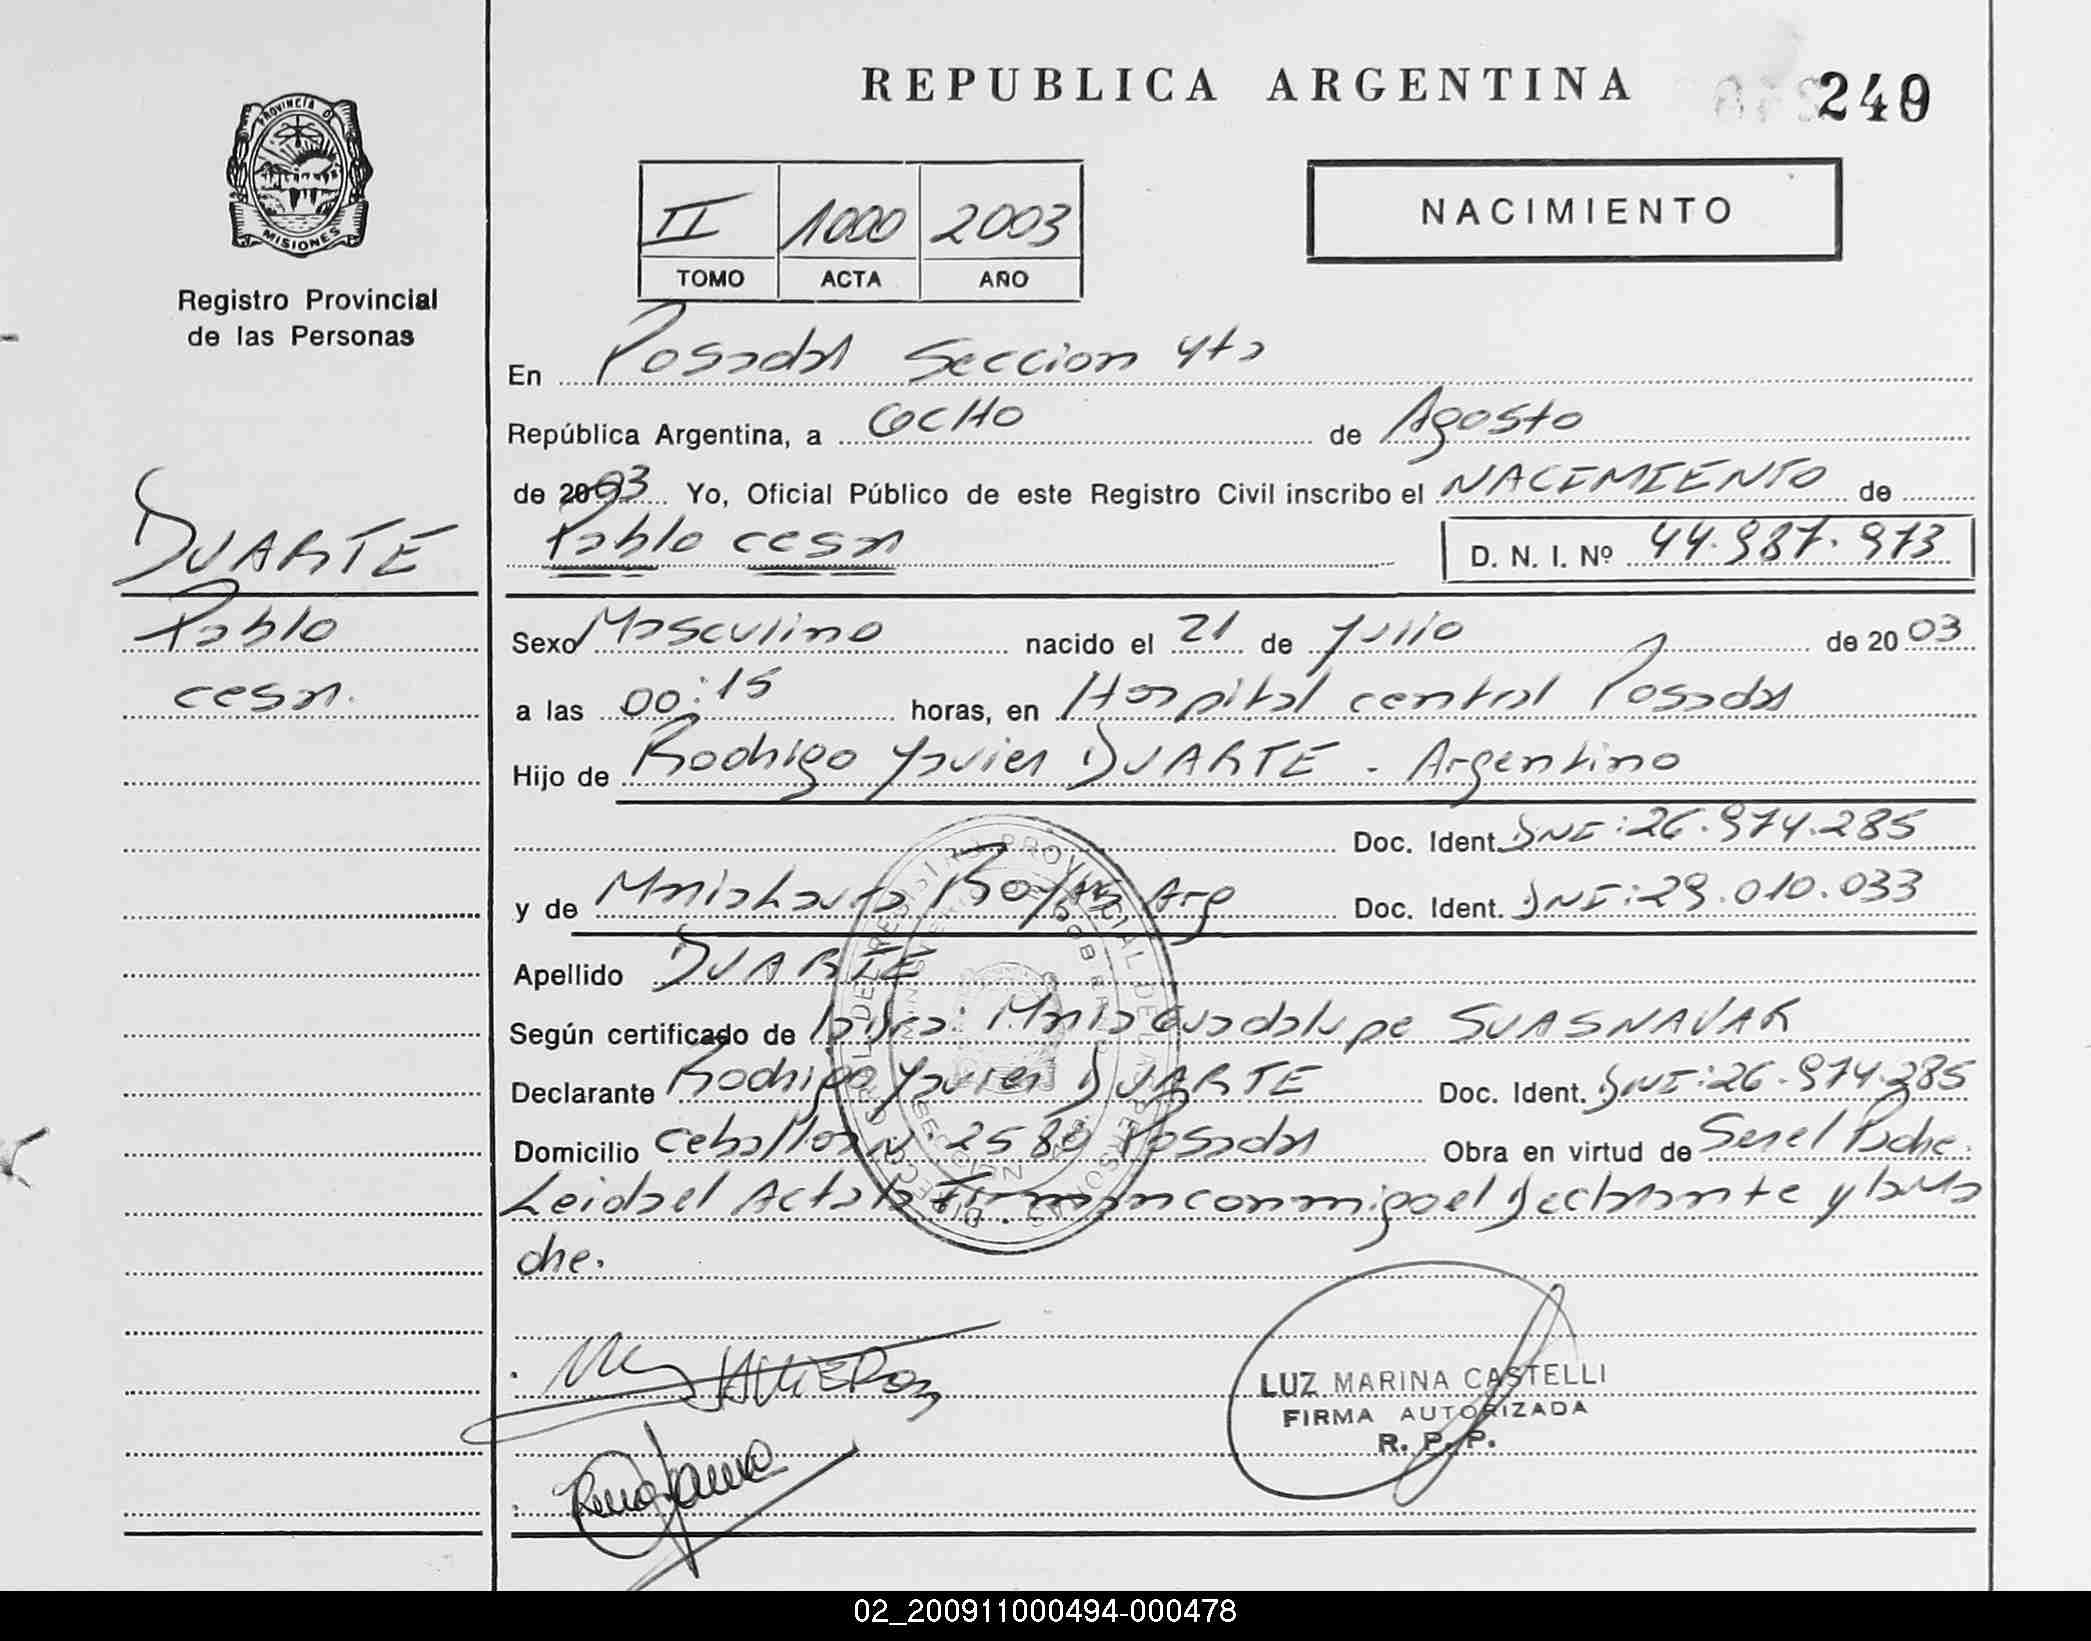 REPUBLICA ARGENTINA
249
PROVINCIA DE
MISIONES
Registro Provincial
de las Personas
II 1000 2003
TOMO ACTA AÑO
NACIMIENTO
En Posadas Seccion 4ta
República Argentina, a OCHO de Agosto
de 2003 Yo, Oficial Público de este Registro Civil inscribo el NACIMIENTO de
Pablo cesar D. N. I. Nº 44.987.973
DUARTE
Pablo
cesar.
Sexo Masculino nacido el 21 de Julio de 2003
a las 00:15 horas, en Hospital central Posadas
Hijo de Rodrigo Javier DUARTE - Argentino
Doc. Ident. DNI: 26.974.285
y de Maria Laura Arg Doc. Ident. DNI: 29.010.033
Apellido DUARTE
Según certificado de la Dra: Maria Guadalupe SUASNAVAR
Declarante Rodrigo Javier DUARTE Doc. Ident. DNI: 26.974.285
Domicilio Ceballos N. 2580 Posadas Obra en virtud de Ser el Padre.
Leida el Acta la Firman conmigo el Declarante y la Ma
dre.
LUZ MARINA CASTELLI
FIRMA AUTORIZADA
R. P. P.
02_200911000494-000478